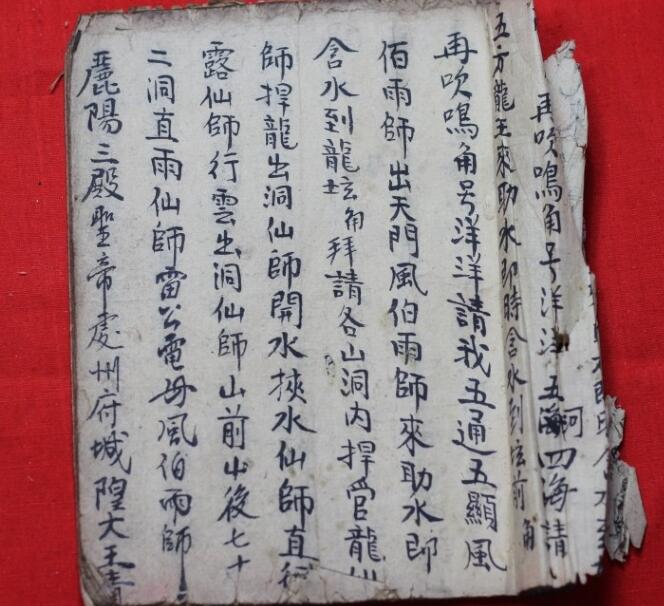 再吹鳴角号洋洋五湖四海請
河
五方龍王來助水即時含水到坛前角
再吹鳴角号洋洋請我五通五顯風
佰雨師出天門風伯雨師來助水即
含水到龍坛角拜請各山洞内捍管龍仙
師捍龍出洞仙師開水挾水仙師直行
露仙師行雲出洞仙師山前山後七十
二洞直雨仙師雷公電母風伯雨師
麗陽三殿聖帝處州府城隍大王請